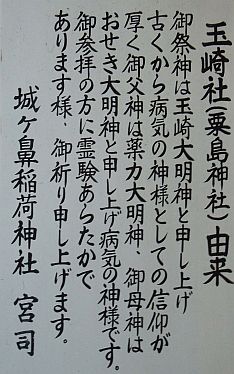 玉崎社(粟島神社)由来
御祭神は玉崎大明神と申し上げ
古くから病気の神様としての信仰が
厚く御父神は薬力大明神、御母神は
おせき大明神と申し上げ病気の神様です。
御参拝の方に霊験あらたかで
あります様、御祈り申し上げます。
城ヶ鼻稲荷神社 宮司